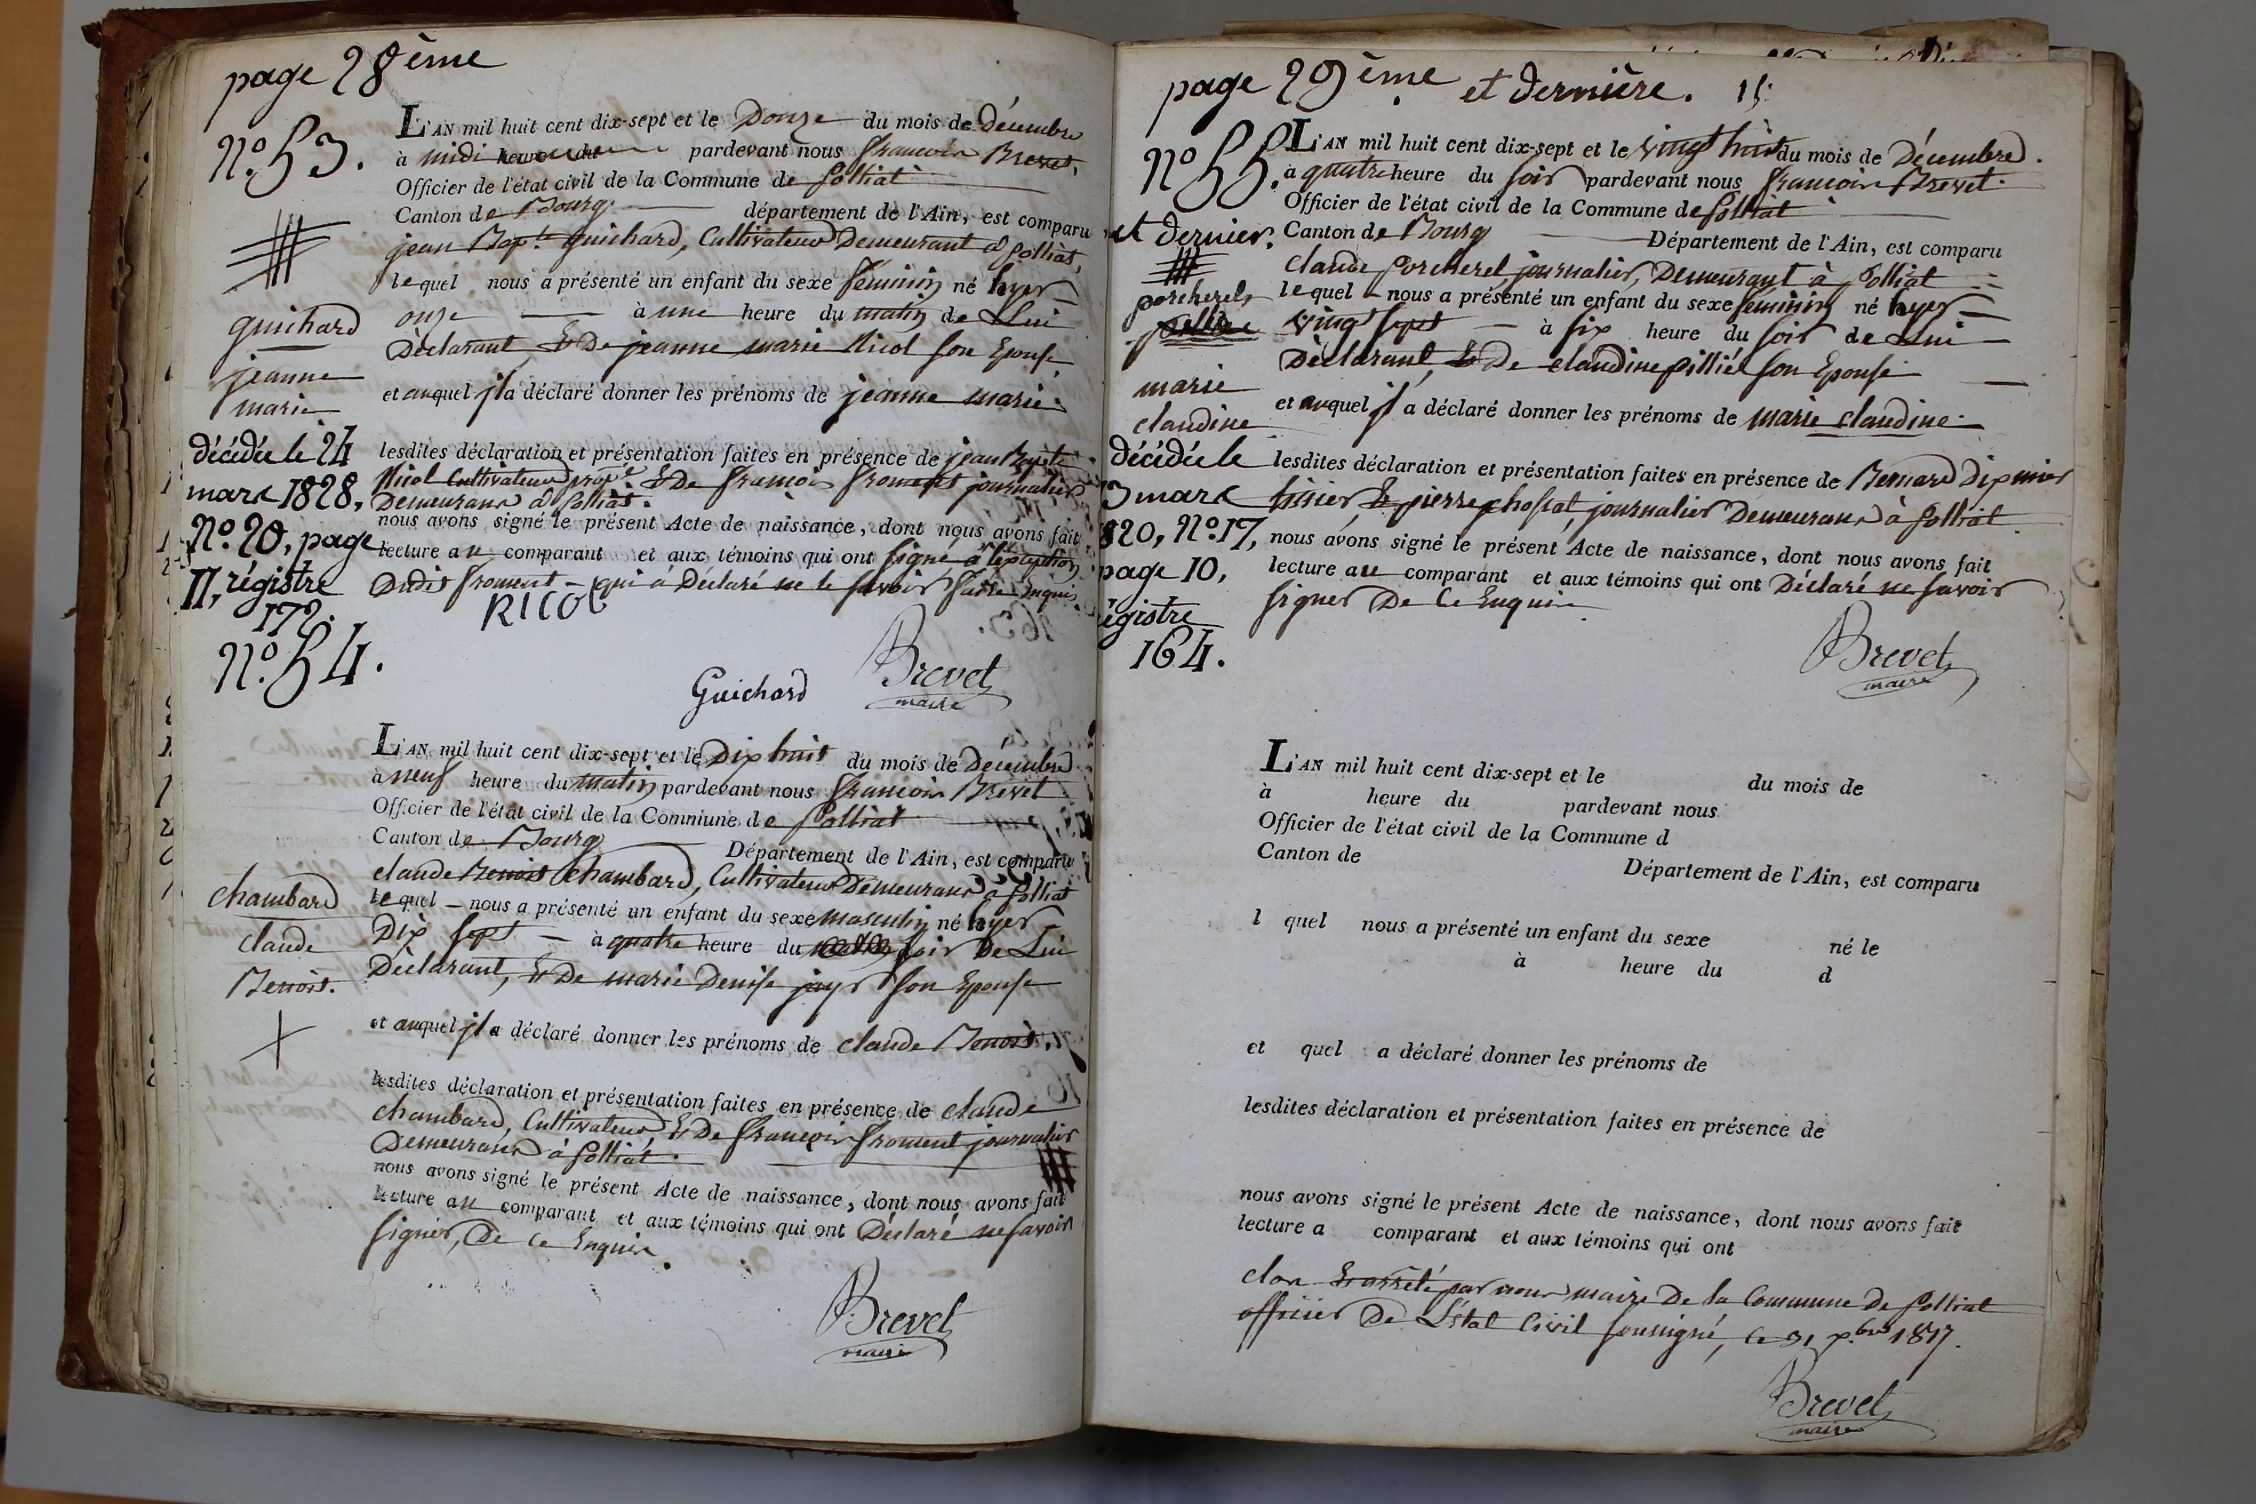 page 28ème
N.º 53.
guichard
jeanne
marie
décédée le 24
mars 1828,
N.º 20, page
11, régistre
172.
L'AN mil huit cent dix-sept et le Douze du mois de décembre
à midi heure du pardevant nous françois Brevet,
Officier de l'état civil de la Commune de polliat
Canton de Bourg département de l'Ain, est comparu
jean Bap.te guichard, Cultivateur Demeurant a polliat,
lequel nous a présenté un enfant du sexe féminin né hyer
onze à une heure du matin de Lui
Déclarant, & De jeanne marie Nicol son Epouse
et auquel jl a déclaré donner les prénoms de jeanne marie.
lesdites déclaration et présentation faites en présence de jean Bap.te
Nicol Cultivateur & De françois froment journalier
Demeurans a polliat.
nous avons signé le présent Acte de naissance, dont nous avons fait
lecture au comparant et aux témoins qui ont signé à l'exception
Dudit froment qui a Déclaré ne le savoir faire Enquis
RICOL
Guichard
Brevet
maire
N.º 54.
chambard
claude
Benoit.
L'AN mil huit cent dix-sept et le Dix huit du mois de décembre
à neuf heure du matin pardevant nous françois Brevet
Officier de l'état civil de la Commune de Polliat
Canton de Bourg Département de l'Ain, est comparu
claude Benoit Chambard, Cultivateur Demeurant à polliat
lequel nous a présenté un enfant du sexe masculin né hyer
Dix sept à quatre heure du soir De Lui
Déclarant, & De marie Denise jayr son Epouse
et auquel jl a déclaré donner les prénoms de claude Benoit.
lesdites déclaration et présentation faites en présence de claude
chambard, Cultivateur, & De françois froment journalier
Demeurans à polliat.
nous avons signé le présent Acte de naissance, dont nous avons fait
lecture au comparant et aux témoins qui ont Déclaré ne savoir
signer, De ce Enquis.
Brevet
maire
page 29ème et dernière. 15.
N.º 55.
et dernier.
porcherel
marie
claudine
décédée le
3 mars
1820, N.º 17,
page 10,
régistre
164.
L'AN mil huit cent dix-sept et le vingt huit du mois de Décembre.
à quatre heure du soir pardevant nous françois Brevet.
Officier de l'état civil de la Commune de polliat
Canton de Bourg Département de l'Ain, est comparu
claude porcherel, journalier, Demeurant à Polliat
lequel nous a présenté un enfant du sexe feminin né hyer
vingt sept à six heure du soir de Lui
Déclarant, & De claudine pillier son Epouse
et auquel jl a déclaré donner les prénoms de marie claudine.
lesdites déclaration et présentation faites en présence de Bernard Dixmier
tissier, & pierre chossat, journalier Demeurans à polliat
nous avons signé le présent Acte de naissance, dont nous avons fait
lecture au comparant et aux témoins qui ont Déclaré ne savoir
signer De Ce Enquis
Brevet
maire
L'AN mil huit cent dix-sept et le du mois de
à heure du pardevant nous
Officier de l'état civil de la Commune d
Canton de Département de l'Ain, est comparu
l quel nous a présenté un enfant du sexe né le
à heure du d
et quel a déclaré donner les prénoms de
lesdites déclaration et présentation faites en présence de
nous avons signé le présent Acte de naissance, dont nous avons fait
lecture a comparant et aux témoins qui ont
clos & arrêté par nous maire De la Commune De polliat
officier De L'état Civil soussigné, le 31 x.bre 1817.
Brevet
maire